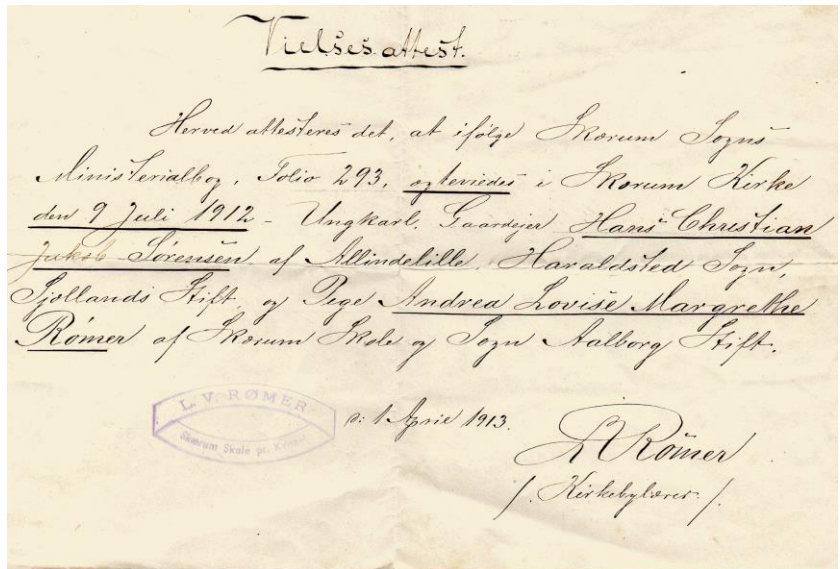 Vielsesattest.
Herved attesteres det, at ifølge Skærum Sogns
Ministerialbog, Folio 293, ægteviedes i Skærum Kirke
den 9 Juli 1912 - Ungkarl, Gaardejer Hans Christian
Jakob Sørensen af Allindelille, Haraldsted Sogn,
Sjællands Stift, og Pige Andrea Lovise Margrethe
Rømer af Skærum Skole og Sogn Aalborg Stift.
L. V. RØMER
Skærum Skole pr.
d: 1 April 1913.
LRømer
/. Kirkebylærer ./.